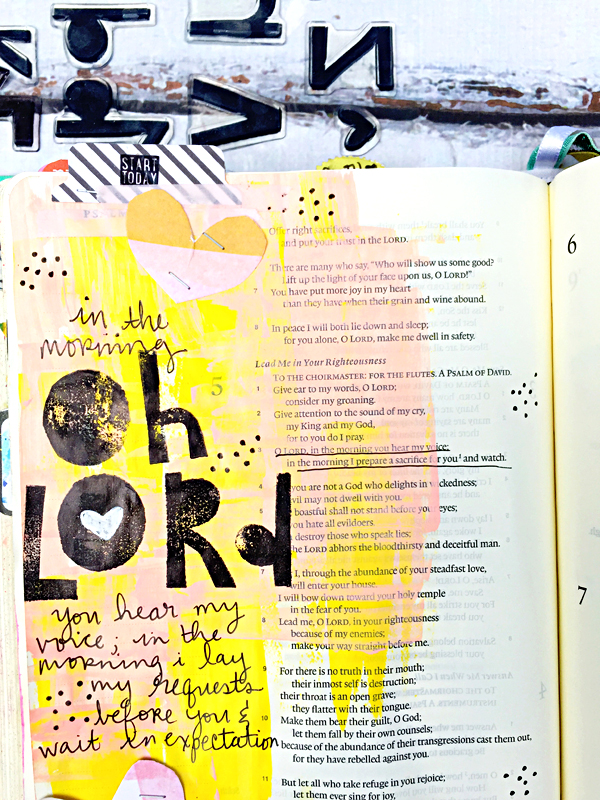 START
TODAY
Offer right sacrifices,
and put your trust in the LORD.
There are many who say, "Who will show us some good?
Lift up the light of your face upon us, O LORD!"
7 You have put more joy in my heart
than they have when their grain and wine abound.
8 In peace I will both lie down and sleep;
for you alone, O LORD, make me dwell in safety.
Lead Me in Your Righteousness
5 TO THE CHOIRMASTER: FOR THE FLUTES. A PSALM OF DAVID.
1 Give ear to my words, O LORD;
consider my groaning.
2 Give attention to the sound of my cry,
my King and my God,
for to you do I pray.
3 O LORD, in the morning you hear my voice;
in the morning I prepare a sacrifice for you¹ and watch.
4 you are not a God who delights in wickedness;
may not dwell with you.
5 boastful shall not stand before your eyes;
you hate all evildoers.
destroy those who speak lies;
the LORD abhors the bloodthirsty and deceitful man.
7 I, through the abundance of your steadfast love,
will enter your house.
I will bow down toward your holy temple
in the fear of you.
8 Lead me, O LORD, in your righteousness
because of my enemies;
make your way straight before me.
9 For there is no truth in their mouth;
their inmost self is destruction;
their throat is an open grave;
they flatter with their tongue.
10 Make them bear their guilt, O God;
let them fall by their own counsels;
because of the abundance of their transgressions cast them out,
for they have rebelled against you.
11 But let all who take refuge in you rejoice;
let them ever sing for joy,
in the
morning
oh
LORd
you hear my
voice; in the
morning i lay
my requests
before you &
wait in expectation
6
7